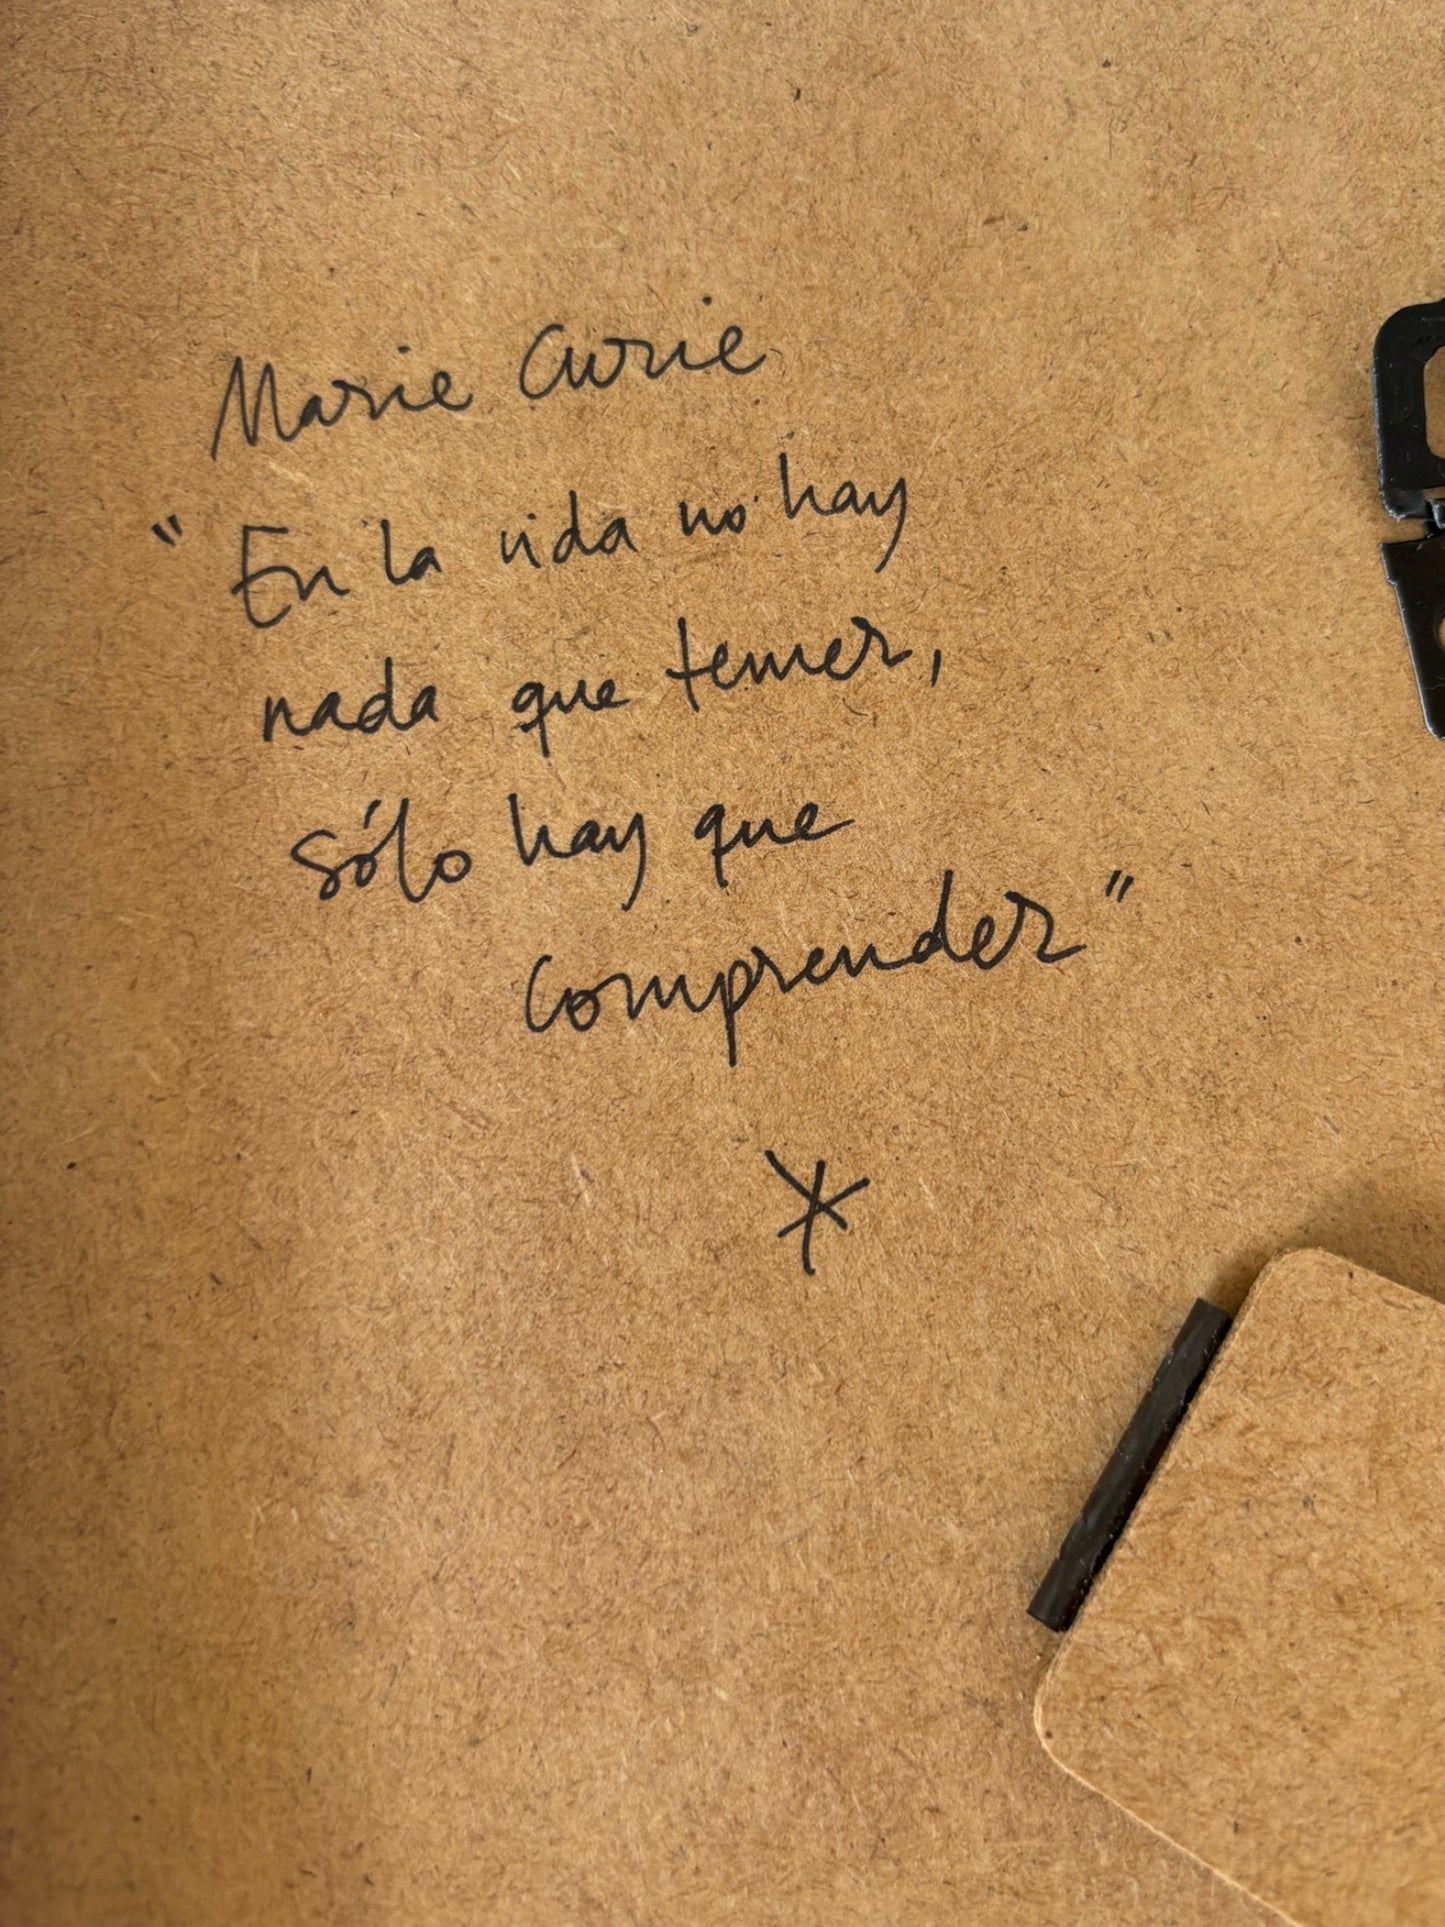 Marie Curie
"En la vida no hay
nada que temer,
sólo hay que
comprender"
*